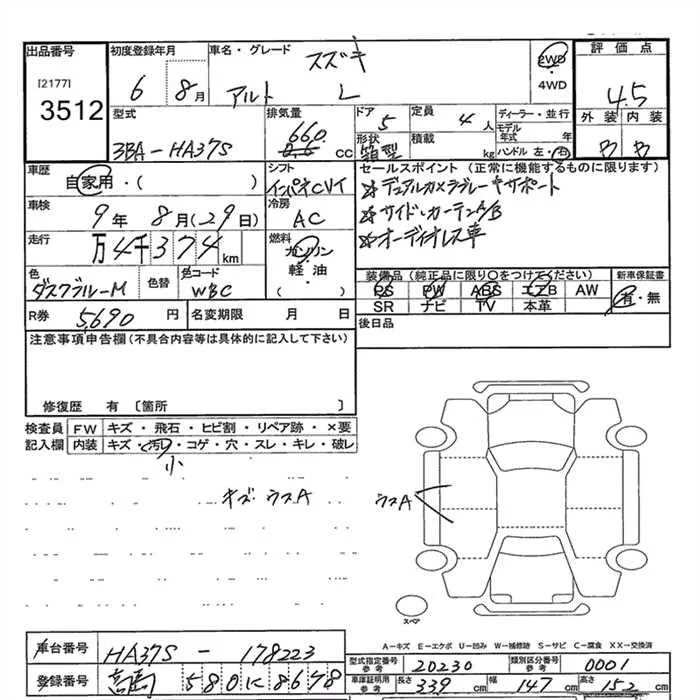 出品番号 初度登録年月 車名・グレード スズキ 2WD 評価点
[2177] 6 8月 アルト L 4WD 4.5
3512 型式 排気量 ドア 5 定員 4人 ディーラー・並行 外装 内装
3BA-HA37S 660 cc 形状 箱型 積載 kg モデル年式 年 B B
ハンドル 左・右
車歴 自家用・( ) シフト インパネCVT セールスポイント (正常に機能するものに限ります)
車検 9年 8月(29日) 冷房 AC ☆デュアルカメラブレーキサポート
☆サイド・カーテンA/B
走行 万4千374km 燃料 ガソリン ☆オーディオレス車
軽・油
( )
色 ダスクブルーM 色替 色コード WBC 装備品 (純正品に限り○をつけてください) 新車保証書
PS PW ABS エアB AW 有・無
SR ナビ TV 本革
R券 5,690円 名変期限 月 日 後日品
注意事項申告欄(不具合内容等は具体的に記入して下さい)
修復歴 有 〔箇所 〕
検査員 FW キズ・飛石・ヒビ割・リペア跡・×要
記入欄 内装 キズ・汚レ・コゲ・穴・スレ・キレ・破レ
小
キズ・ウスA ウスA
スペア
A-キズ E-エクボ U-凹み W-補修跡 S-サビ C-腐食 XX-交換済
車台番号 HA37S - 178223 型式指定番号 参考 20230 類別区分番号 参考 0001
登録番号 580に8678 車庫証明用 参考 長さ 339 cm 幅 147 cm 高さ 152 cm